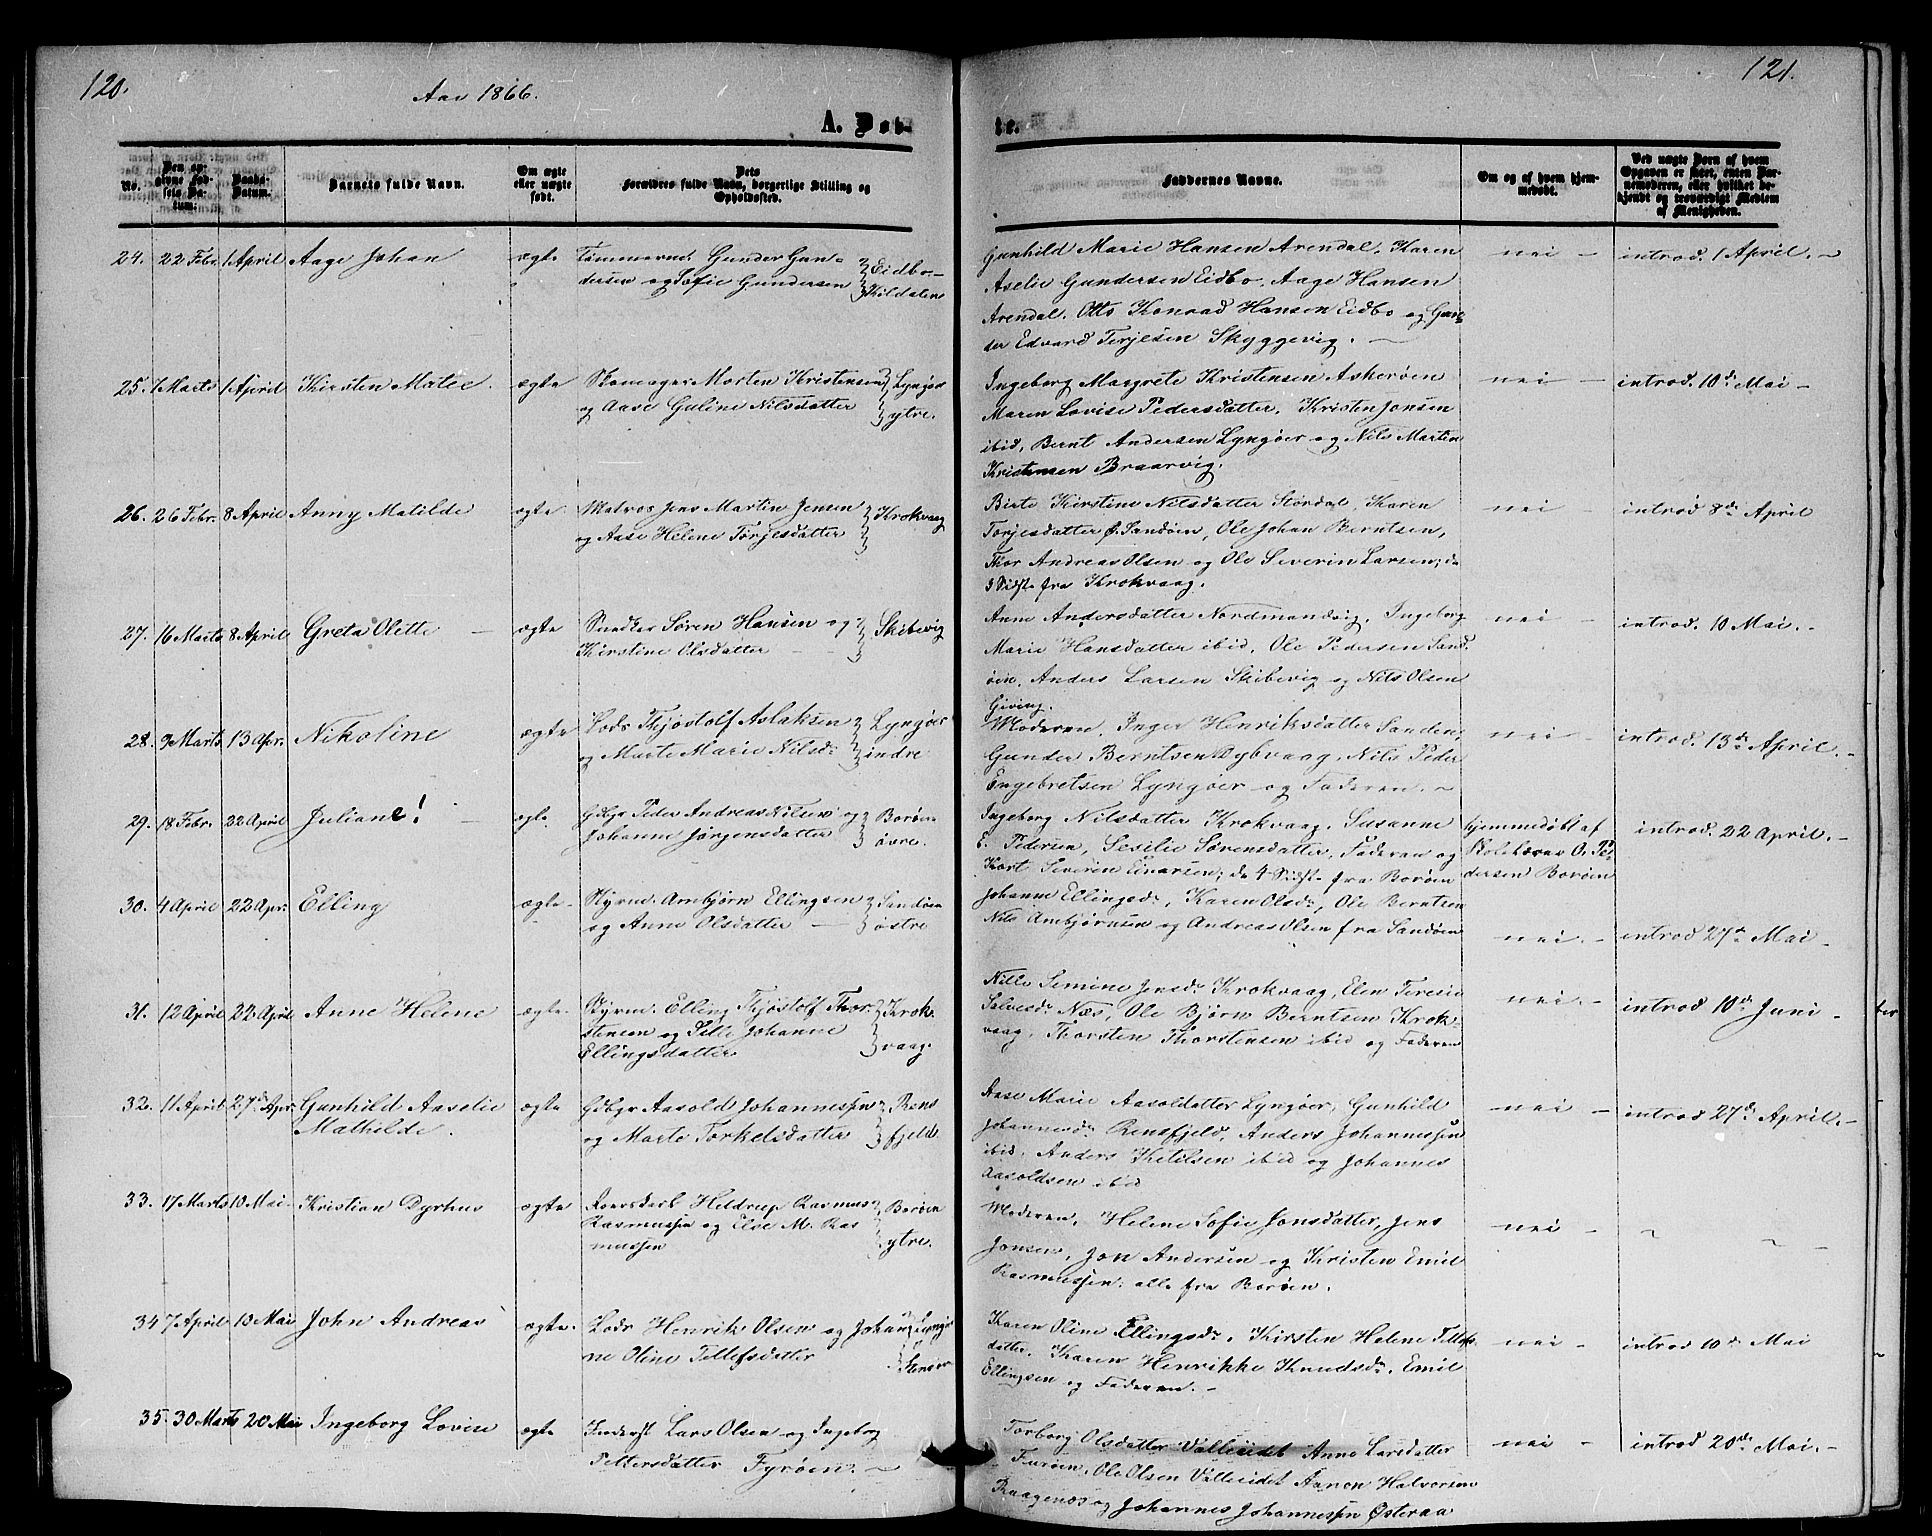 120.
Aar 1866.
121.
A. Døb-
te.
No.
Den opgivne Fødsels Datum.
Daabs-Datum.
Barnets fulde Navn.
Om ægte eller uægte født.
Dets Forældres fulde Navn, borgerlige Stilling og Opholdssted.
Faddernes Navne.
Om og af hvem hjemmedøbt.
Ved uægte Børn af hvem Opgaven er skeet, enten Barnemoderen, eller hvilket bekjendt og troværdigt Medlem af Menigheden.
24. 22 Febr 1 April Aage Johan ægte Tømmermd. Gunder Gun- Eidbo-
dersen og Sofie Gundersen Kildalene
Gunhild Marie Hansen Arendal, Karen nei – introd. 1 April. –
Aselie Gundersen Eidbo. Aage Hansen
Arendal. Otto Konrad Hansen Eidbo og Gun-
der Edvard Terjesen Skyggevig. –
25. 1 Marts 1 April Kirsten Matee. ægte Skomager Morten Kristensen Lyngør
og Aase Guline Nilsdatter ytre.
Ingeborg Margrete Kristensen Askerøen nei – introd. 10de Mai –
Maren Lovise Pedersdatter. Kristen Jonsen
ibid, Bernt Andersen Lyngøer og Nils Martin
Kristensen Braarvig.
26. 26 Febr. 8 April Anny Matilde ægte Matros Jens Martin Jensen Krokvaag
og Aase Helene Terjesdatter
Birte Kirstine Nilsdatter Stordal, Karen nei – introd 8de April
Torjesdatter Ø. Sandøen, Ole Johan Berntsen,
Thor Andreas Olsen og Ole Severin Larsen; de
3 Sidste fra Krokvaag.
27. 16 Marts 8 April Greta Olette – ægte Snedker Søren Hansen og Skibevig
Kirstine Olsdatter – –
Anne Andersdatter Nordmandvig, Ingeborg nei – introd. 10 Mai. –
Marie Hansdatter ibid, Ole Pedersen Sand
øen. Anders Larsen Skibevig og Nils Olsen
Giving.
28. 9 Marts 13 Apr. Nikoline ægte Lods Thjøstolf Aslaksen Lyngøer
og Marte Marie Nilsd: indre
Moderen, Inger Henriksdatter Sanden, nei – introd. 13de April. –
Gunder Berntsen Dybvaag, Nils Peder
Engebretsen Lyngøer og Faderen. –
29. 18 Febr. 22 April Juliane! – ægte Gdbgr Peder Andreas Nilsen og Borøen
Johanne Jørgensdatter øvre.
Ingeborg Nilsdatter Krokvaag, Susanne hjemmedøbt af introd. 22 April. –
E. Pedersen, Sesilie Sørensdatter, Faderen og Skolelærer O. Pe-
Kort Severin Einarsen; de 4 Sidste fra Borøen dersen Borøen
30. 4 April 22 Apr. Elling ægte – Styrmd. Arnbjørn Ellingsen Sandøen
og Anne Olsdatter – østre
Johanne Ellingsd:, Karen Olsd:, Ole Berntsen
Nils Arnbjørnsen og Andreas Olsen fra Sandøen nei. – introd 27de Mai –
31. 12 April 22 April Anne Helene ægte – Styrmd. Elling Thjøstolf Thor- Krok-
stensen og Sille Johanne vaag.
Ellingsdatter
Nille Semine Jensd: Krokvaag, Elen Teresie nei. – introd 10de Juni –
Salvesd: Næs, Ole Bjørn Berntsen Krok-
vaag, Thorsten Thorstensen ibid og Faderen
32. 11 April 27de Apr. Gunhild Aaselie ægte Gdbgr Aasold Johannessen Rens
Mathilde. og Marte Torkelsdatter fjeld.
Aase Marie Aasoldatter Lyngøer, Gunhild nei – introd 27de April. –
Johannesd: Rensfjeld, Anders Johannessen
ibid. Anders Ketilsen ibid og Johannes
Aasoldsen ibid
33. 17 Marts 10 Mai – Kristian Dyrhus ægte Heldrup Rasmus Borøen
Rasmussen og Else M. Ras ytre.
mussen
Moderen, Helene Sofie Jonsdatter, Jens nei –
Jonsen, Jon Andersen og Kristen Emil
Rasmussen. alle fra Borøen.
34 7 April 10 Mai John Andreas ægte. Lods Henrik Olsen og Johan Lyngør
ne Oline Tellefsdatter
Karen Oline Ellingsd:, Kirsten Helene Tellefs nei – introd 10de Mai
datter. Karen Henrikke Knudsd:, Emil
Ellingsen og Faderen. –
35. 30 Marts 20 Mai Ingeborg Lovise ægte Inderst Lars Olsen og Ingeborg
Pettersdatter Fyrøen. –
Torborg Olsdatter Valleeidet Anne Larsdatter nei – introd 20de Mai. –
Furøen, Ole Olsen Valleeidet Aanon Halvorsen
Kraagenæs og Johannes Johannessen Østeraa